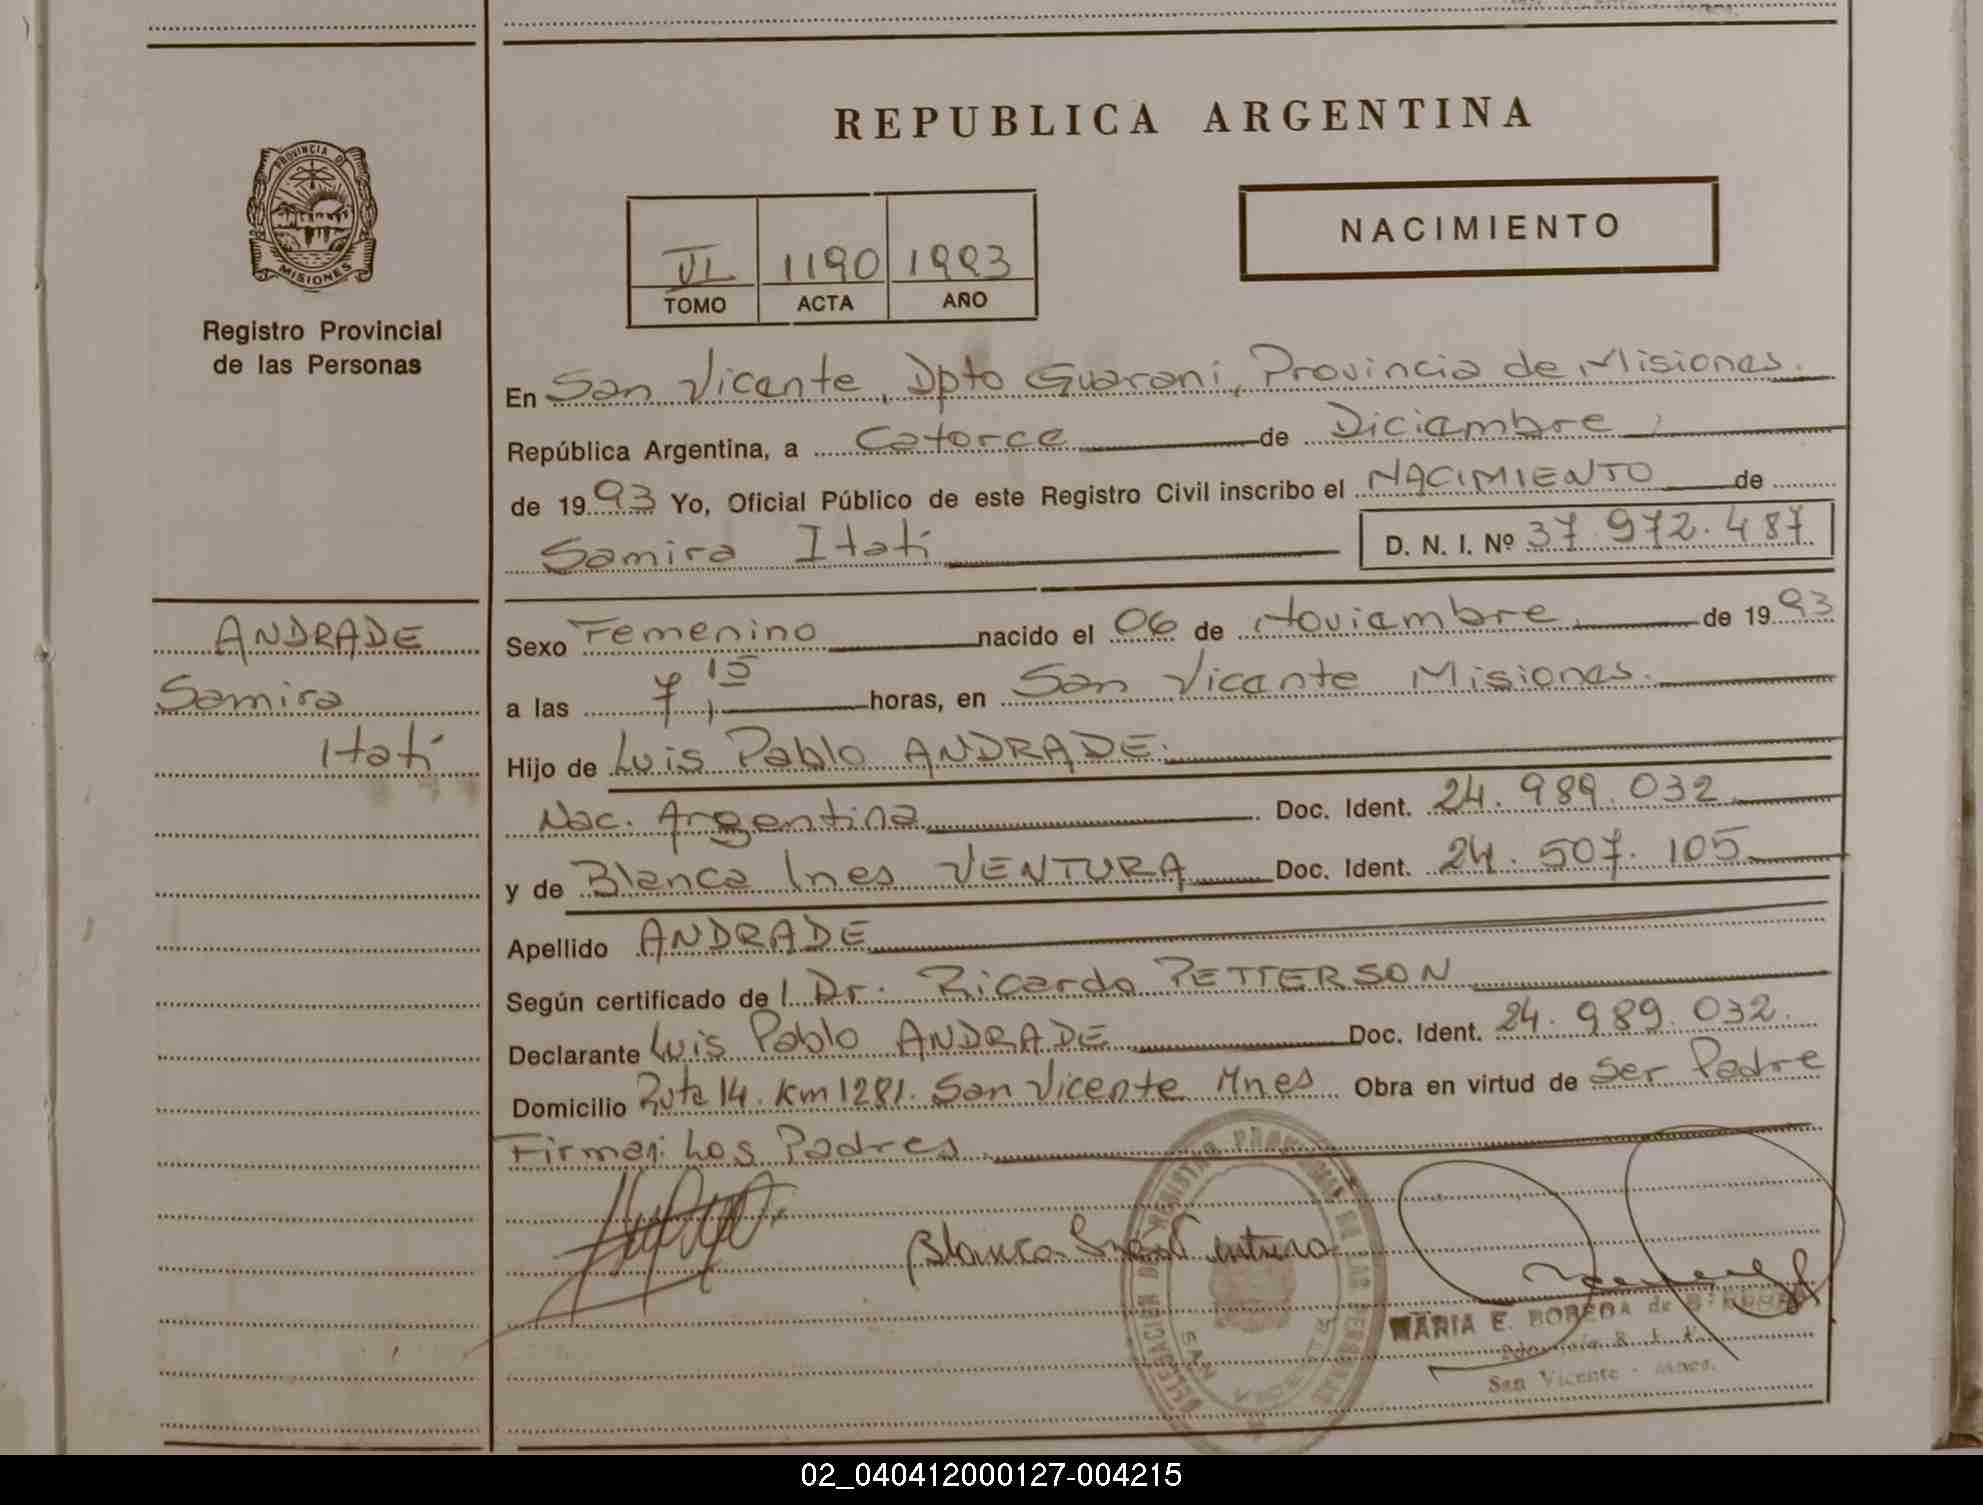 REPUBLICA ARGENTINA
PROVINCIA D
MISIONES
Registro Provincial
de las Personas
VI 1190 1993
TOMO ACTA AÑO
NACIMIENTO
En San Vicente, Dpto Guarani, Provincia de Misiones.
República Argentina, a Catorce de Diciembre
de 1993 Yo, Oficial Público de este Registro Civil inscribo el NACIMIENTO de
Samira Itatí D. N. I. Nº 37.972.487
ANDRADE
Samira
Itatí
Sexo Femenino nacido el 06 de Noviembre de 1993
a las 7,15 horas, en San Vicente Misiones.
Hijo de Luis Pablo ANDRADE.
Nac. Argentina Doc. Ident. 24.989.032
y de Blanca Ines VENTURA Doc. Ident. 24.507.105
Apellido ANDRADE
Según certificado de l Dr. Ricardo PETTERSON
Declarante Luis Pablo ANDRADE Doc. Ident. 24.989.032.
Domicilio Ruta 14. Km 1281. San Vicente Mnes Obra en virtud de Ser Padre
Firman: Los Padres
Blanca Ines Ventura
DELEGACION REGISTRO PROVINCIAL DE LAS PERSONAS
SAN VICENTE
MARIA E. BOREDA de
San Vicente - Mnes.
02_040412000127-004215